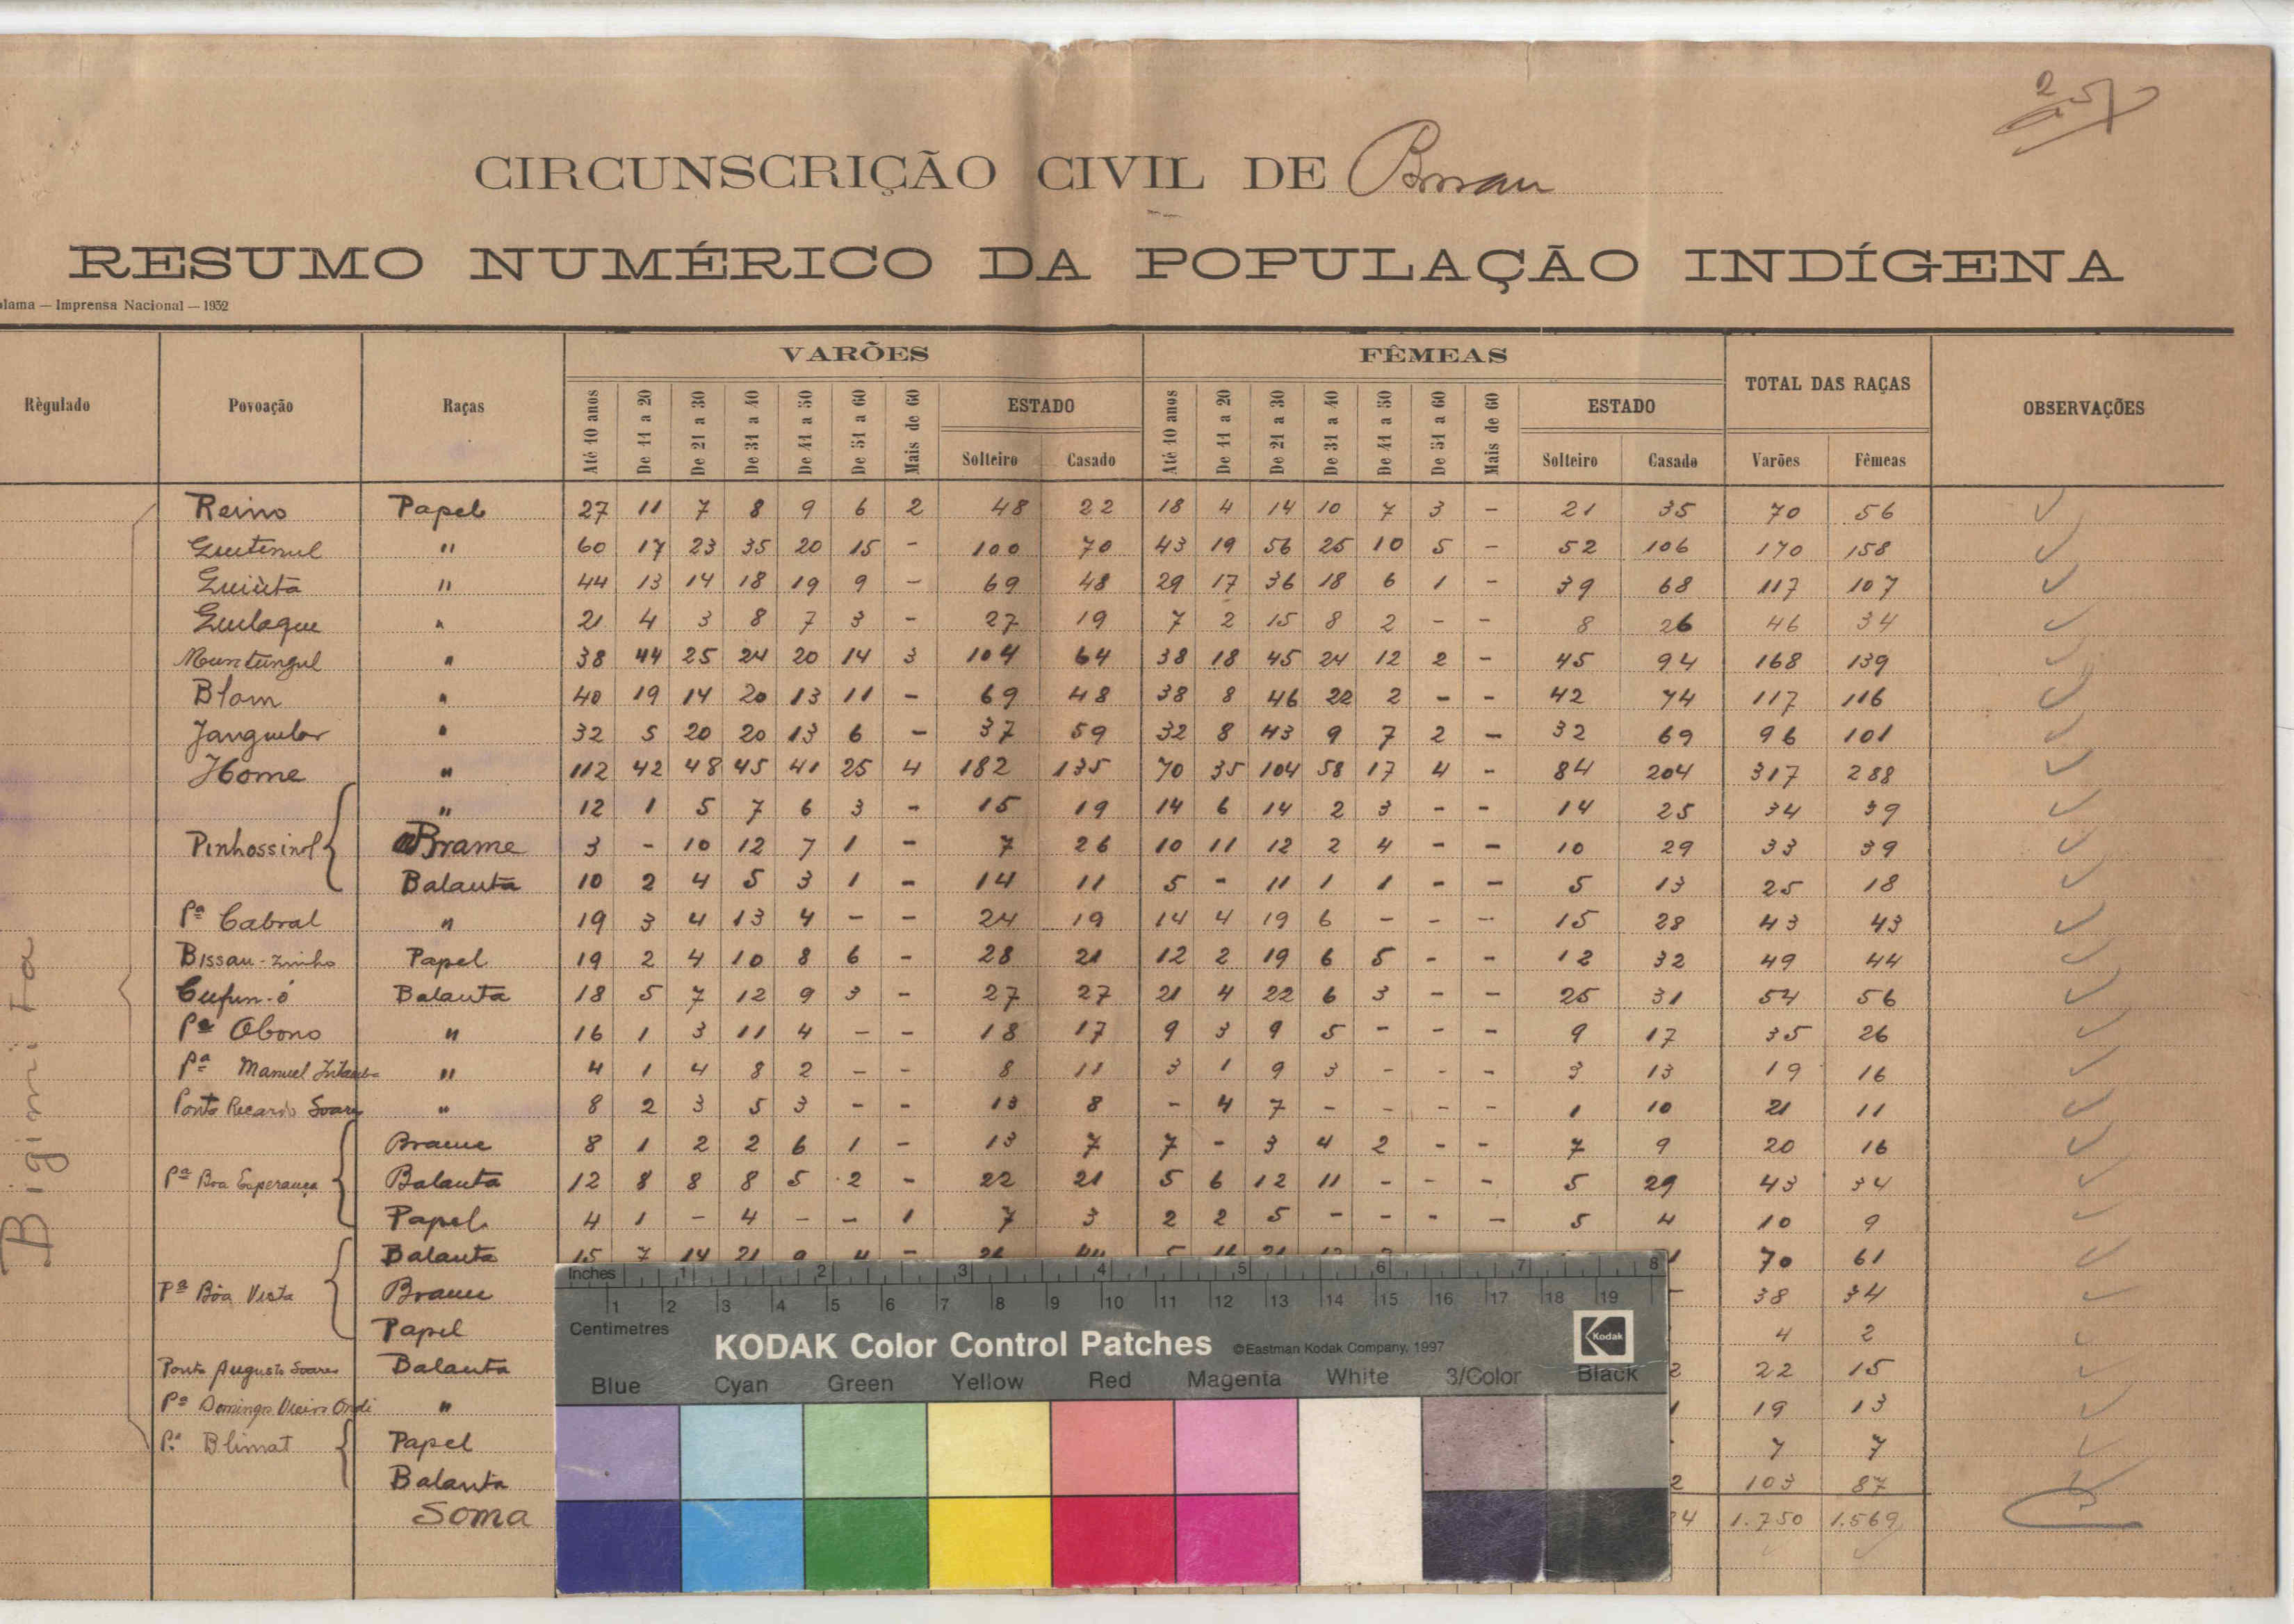 25
CIRCUNSCRIÇÃO CIVIL DE Bissau
RESUMO NUMÉRICO DA POPULAÇÃO INDÍGENA
olama — Imprensa Nacional — 1932
VARÕES FÊMEAS TOTAL DAS RAÇAS
Règulado Povoação Raças Até 10 anos De 11 a 20 De 21 a 30 De 31 a 40 De 41 a 50 De 51 a 60 Mais de 60 ESTADO Até 10 anos De 11 a 20 De 21 a 30 De 31 a 40 De 41 a 50 De 51 a 60 Mais de 60 ESTADO OBSERVAÇÕES
Solteiro Casado Solteiro Casado Varões Fêmeas
Bigimita
Reino Papel 27 11 7 8 9 6 2 48 22 18 4 14 10 7 3 - 21 35 70 56
" 60 17 23 35 20 15 - 100 70 43 19 56 25 10 5 - 52 106 170 158
Quiùta " 44 13 14 18 19 9 - 69 48 29 17 36 18 6 1 - 39 68 117 107
Quilaque " 21 4 3 8 7 3 - 27 19 7 2 15 8 2 - - 8 26 46 34
Muntungul " 38 44 25 24 20 14 3 104 64 38 18 45 24 12 2 - 45 94 168 139
Blom " 40 19 14 20 13 11 - 69 48 38 8 46 22 2 - - 42 74 117 116
" 32 5 20 20 13 6 - 37 59 32 8 43 9 7 2 - 32 69 96 101
Home " 112 42 48 45 41 25 4 182 135 70 35 104 58 17 4 - 84 204 317 288
" 12 1 5 7 6 3 - 15 19 14 6 14 2 3 - - 14 25 34 39
Pinhossinol Brame 3 - 10 12 7 1 - 7 26 10 11 12 2 4 - - 10 29 33 39
Balanta 10 2 4 5 3 1 - 14 11 5 - 11 1 1 - - 5 13 25 18
Pª Cabral " 19 3 4 13 4 - - 24 19 14 4 19 6 - - - 15 28 43 43
Bissau-zinho Papel 19 2 4 10 8 6 - 28 21 12 2 19 6 5 - - 12 32 49 44
Cufun-ó Balanta 18 5 7 12 9 3 - 27 27 21 4 22 6 3 - - 25 31 54 56
Pª Obono " 16 1 3 11 4 - - 18 17 9 3 9 5 - - - 9 17 35 26
Pª Manuel " 4 1 4 8 2 - - 8 11 3 1 9 3 - - - 3 13 19 16
Ponta Ricardo Soares " 8 2 3 5 3 - - 13 8 - 4 7 - - - - 1 10 21 11
Brame 8 1 2 2 6 1 - 13 7 7 - 3 4 2 - - 7 9 20 16
Pª Boa Esperança Balanta 12 8 8 8 5 2 - 22 21 5 6 12 11 - - - 5 29 43 34
Papel 4 1 - 4 - - 1 7 3 2 2 5 - - - - 5 4 10 9
Balanta 15 7 14 21 9 4 - 70 61
Pª Bôa Vista Brame 38 34
Papel 4 2
Ponta Augusto Soares Balanta 2 22 15
Pª Domingos Vieira " 19 13
Pª Blimat Papel 7 7
Balanta 2 103 87
Soma 1.750 1.569
Inches 1 2 3 4 5 6 7 8
1 2 3 4 5 6 7 8 9 10 11 12 13 14 15 16 17 18 19
Centimetres
KODAK Color Control Patches ©Eastman Kodak Company, 1997 Kodak
Blue Cyan Green Yellow Red Magenta White 3/Color Black